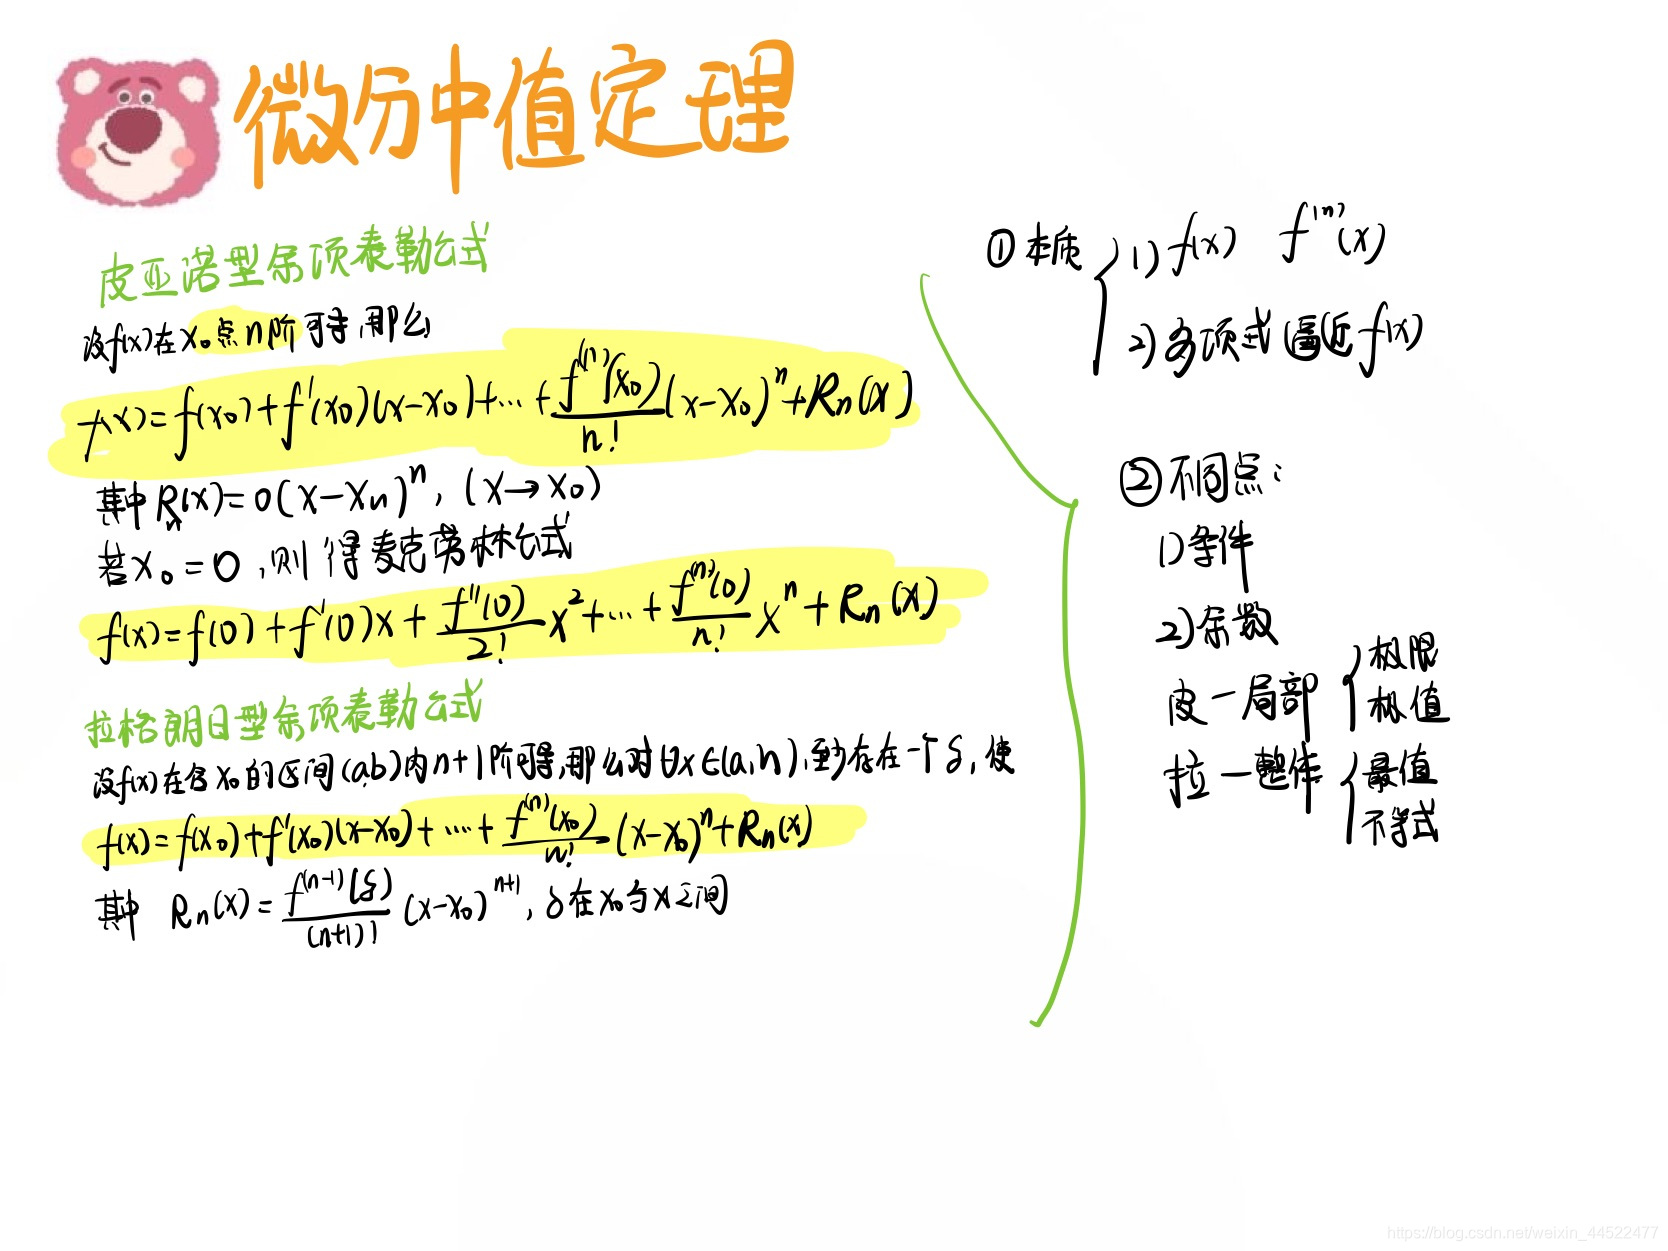 微分中值定理
皮亚诺型余项泰勒公式
设f(x)在x₀点n阶可导,那么
f(x)=f(x₀)+f'(x₀)(x-x₀)+…+f⁽ⁿ⁾(x₀)/n!(x-x₀)ⁿ+Rn(x)
其中Rn(x)=o(x-xn)ⁿ, (x→x₀)
若x₀=0,则得麦克劳林公式
f(x)=f(0)+f'(0)x+f''(0)/2!x²+…+f⁽ⁿ⁾(0)/n!xⁿ+Rn(x)
拉格朗日型余项泰勒公式
设f(x)在含x₀的区间(a,b)内n+1阶可导,那么对∀x∈(a,b),至少存在一个ξ,使
f(x)=f(x₀)+f'(x₀)(x-x₀)+…+f⁽ⁿ⁾(x₀)/n!(x-x₀)ⁿ+Rn(x)
其中 Rn(x)=f⁽ⁿ⁻¹⁾(ξ)/(n+1)!(x-x₀)ⁿ⁺¹, ξ在x₀与x之间
①本质
1)f(x) f⁽ⁿ⁾(x)
2)多项式逼近f(x)
②不同点:
1)条件
2)余数
皮-局部
极限
极值
拉-整体
最值
不等式
https://blog.csdn.net/weixin_44522477